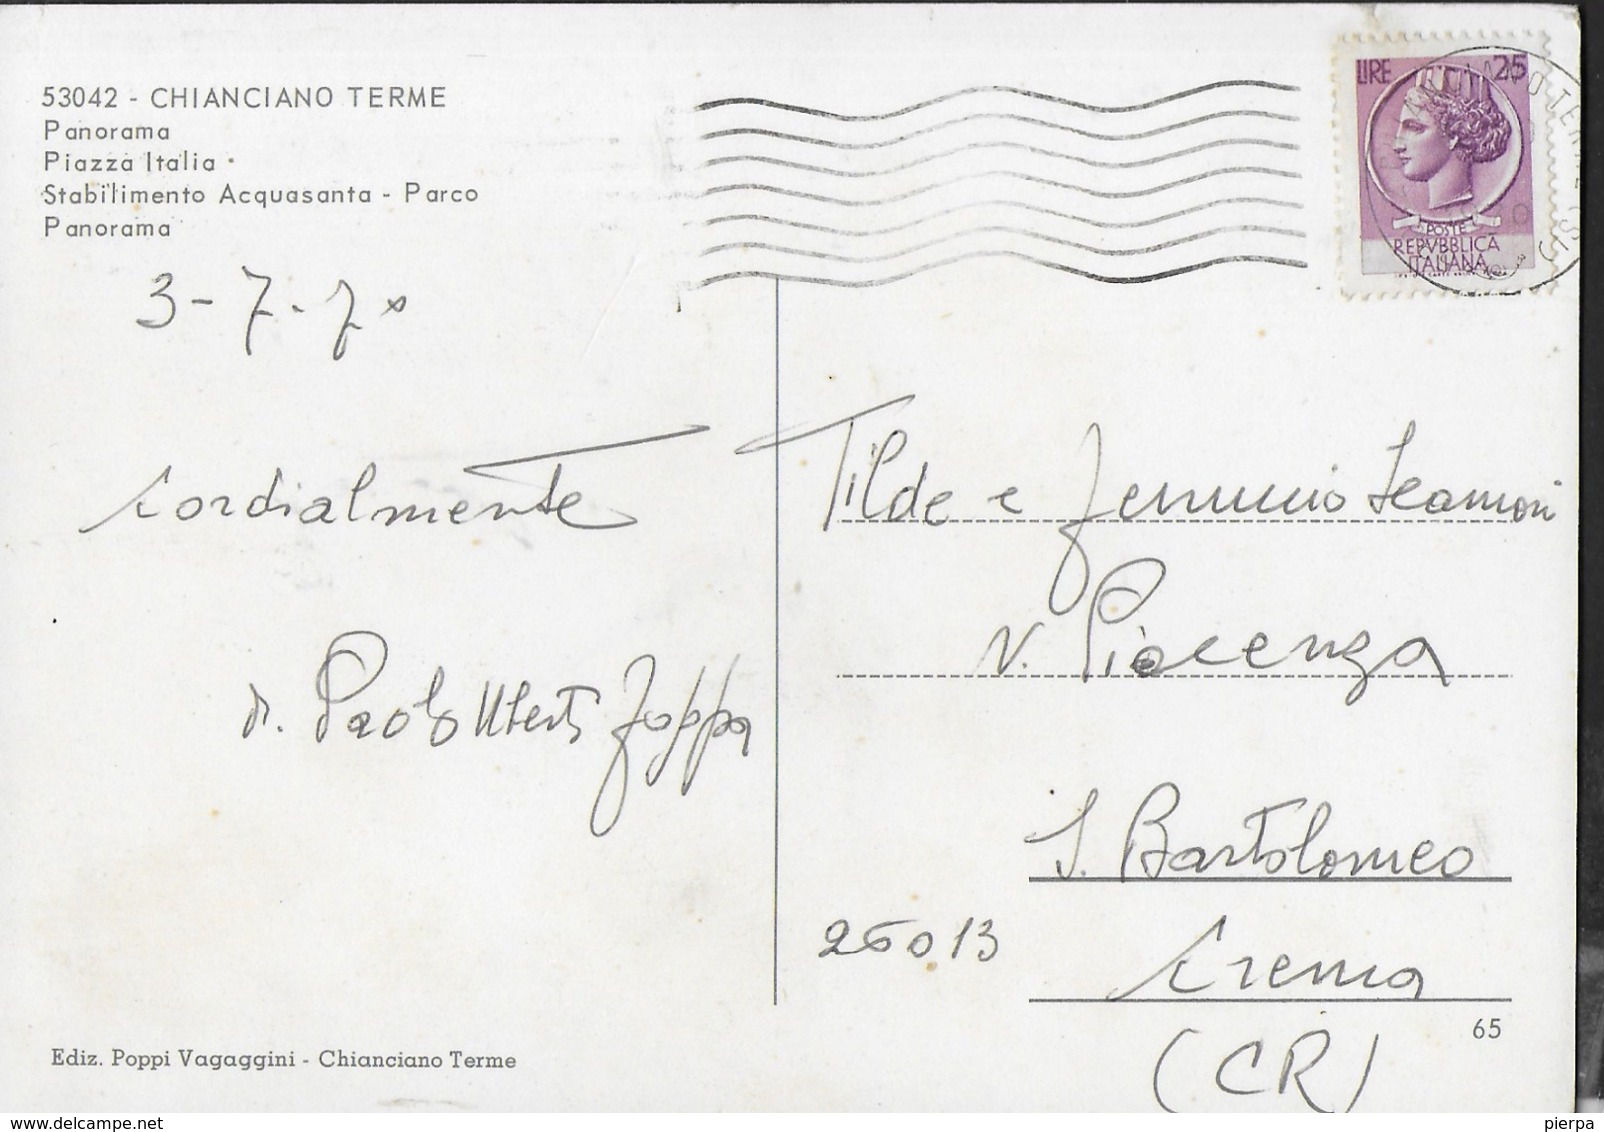 53042 - CHIANCIANO TERME
Panorama
Piazza Italia
Stabilimento Acquasanta - Parco
Panorama
3-7-70
cordialmente
dr. Paolo Uberto Zoppa
Ediz. Poppi Vagaggini - Chianciano Terme
LIRE 25
POSTE
REPVBBLICA
ITALIANA
TERME (SI)
Tilde e Ferruccio
v. Piacenza
S. Bartolomeo
26013
Crema
(CR)
65
pierpa